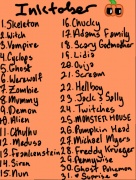 Inktober
1. Skeleton
2. Witch
3. Vampire
4. Cyclops
5. Ghost
6. Werewolf
7. Zombie
8. Mummy
9. Demon
10. Alien
11. Cthulhu
12. Medusa
13. Frankenstein
14. Siren
15. Nun
16. Chucky
17. Adams Family
18. Scary Godmother
19. Lidia
20. Ouija
21. Scream
22. Hellboy
23. Jack & Sally
24. Twitches
25. MONSTER HOUSE
26. Pumpkin Head
27. Michael Myers
28. Freddy Krueger
29. Pennywise
30. Ghost Pokemon
31. Sunrise